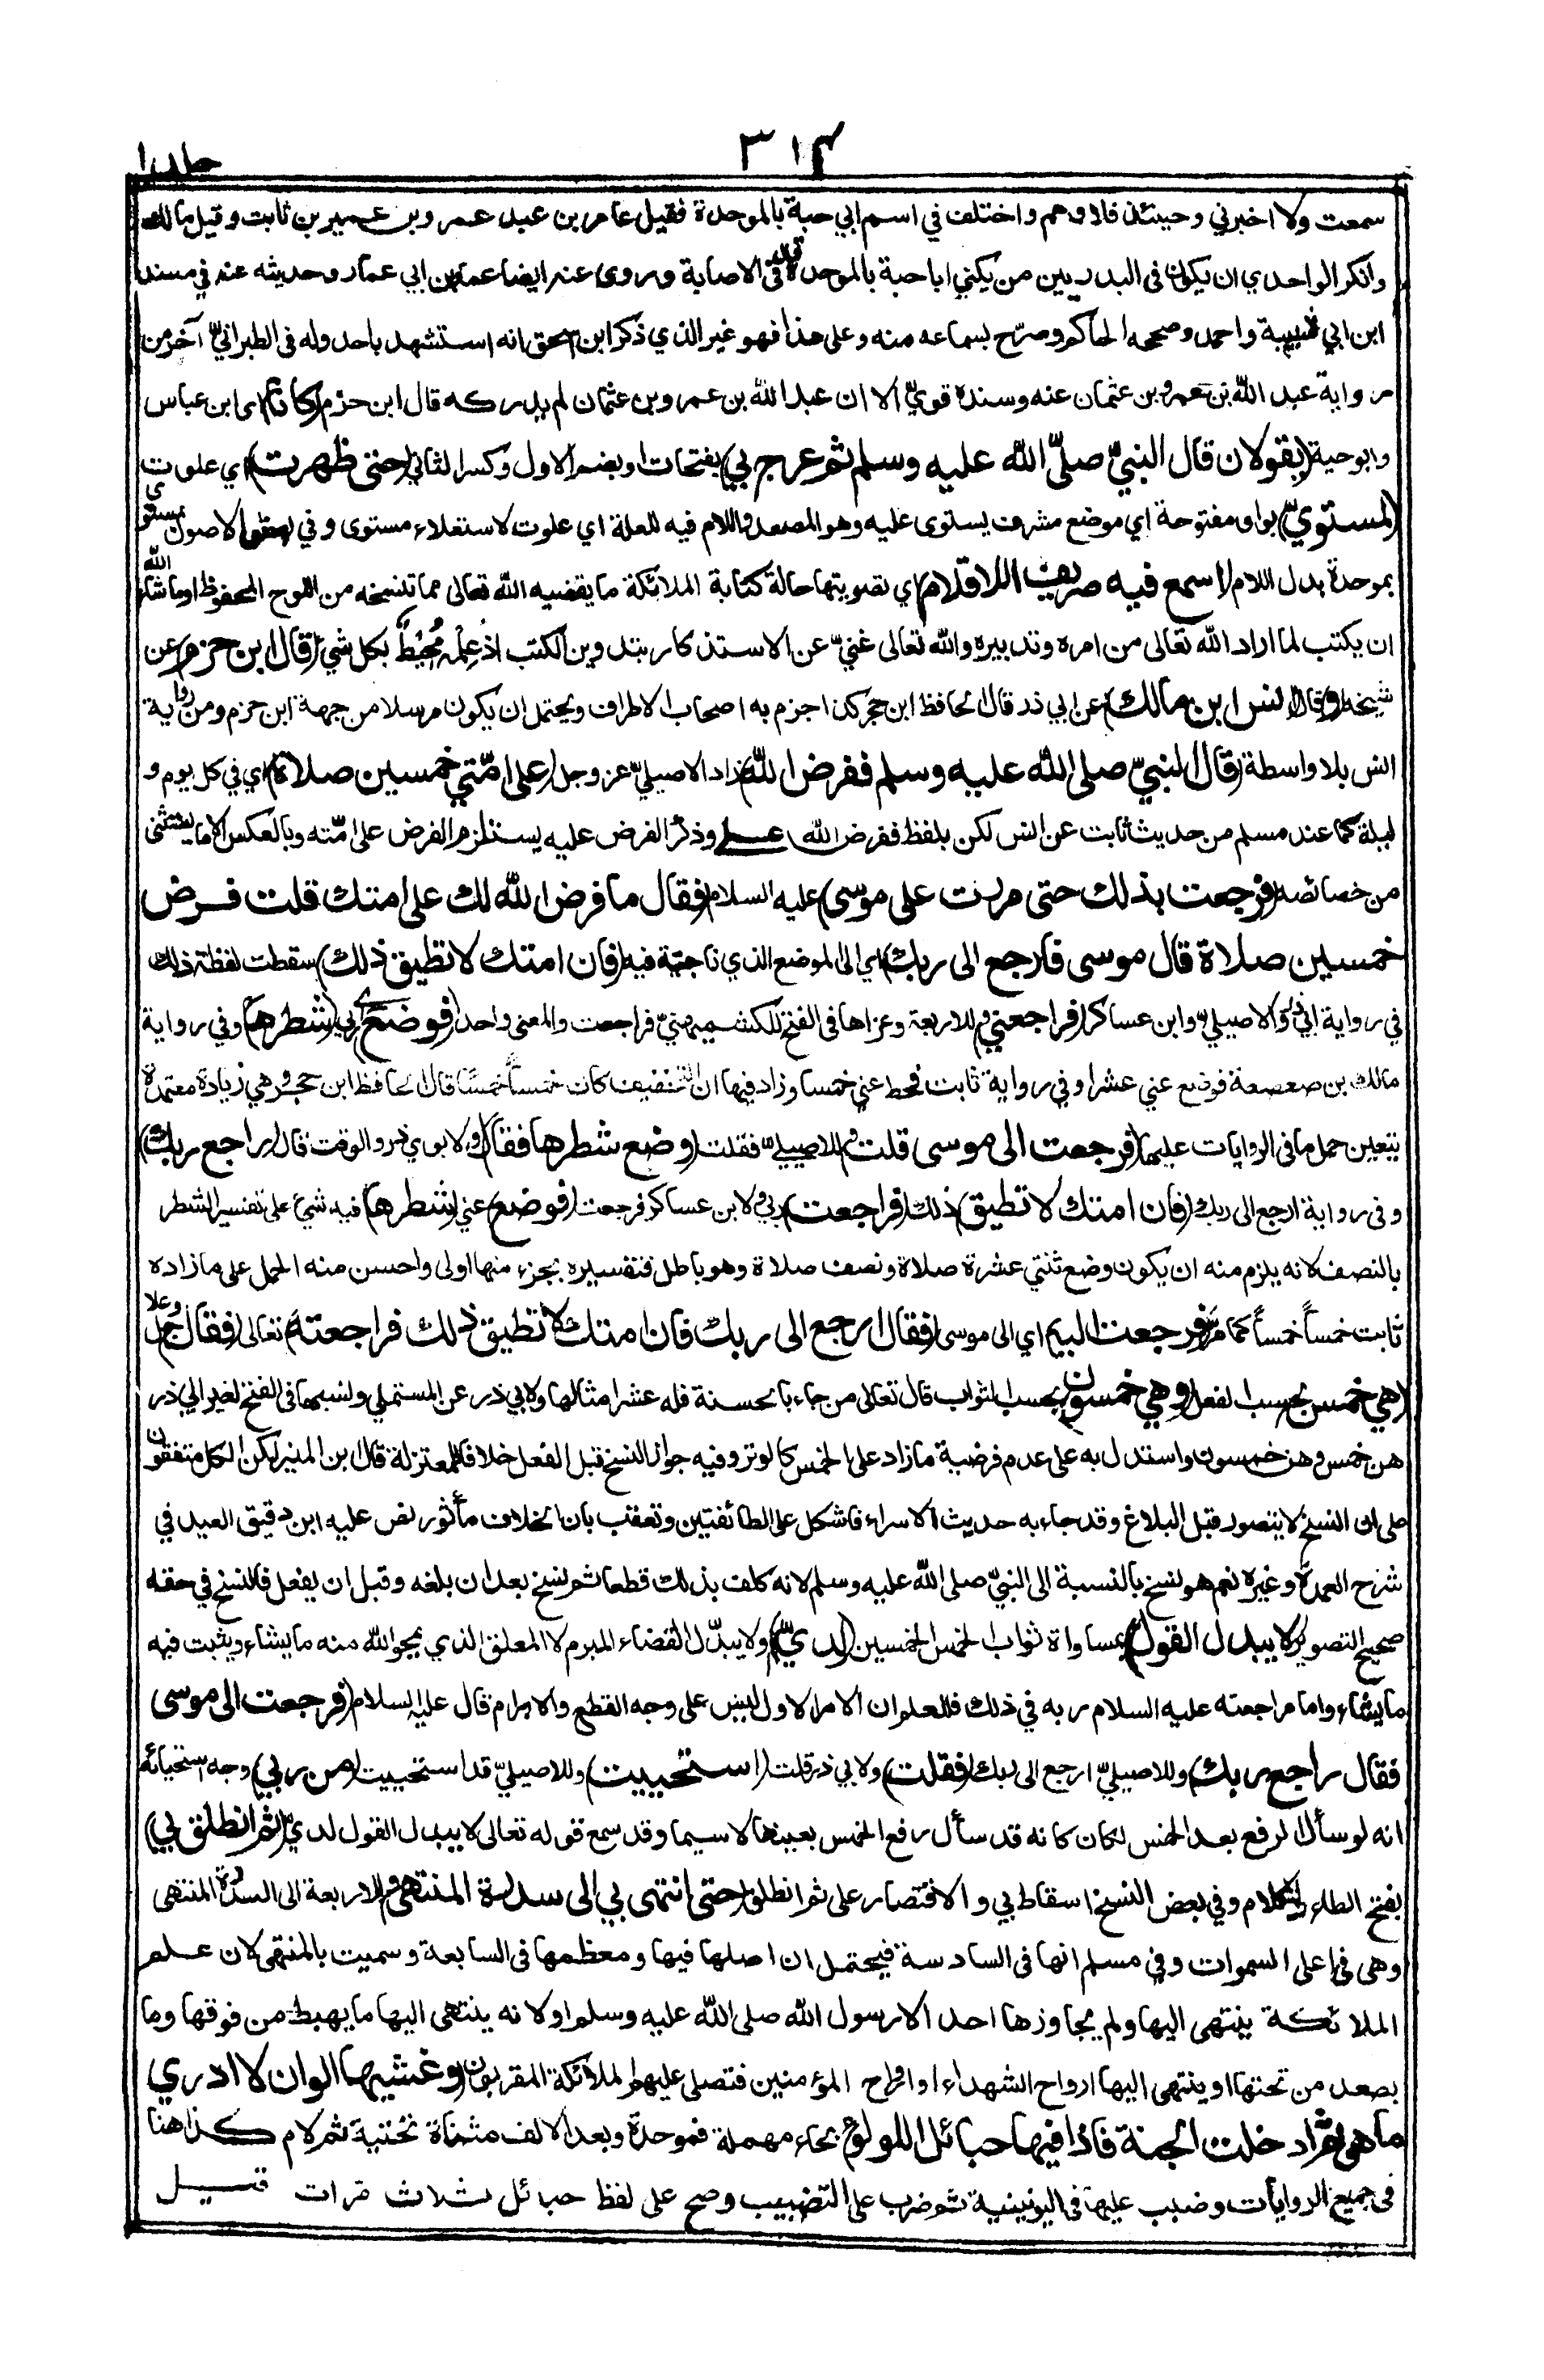 ٣١٤
جلد ١
سمعت ولا اخبرني وحينئذ فلا وهم واختلف في اسم ابي حبة بالموحدة فقيل عامر بن عبد عمرو بن عمير بن ثابت وقيل مالك
وانكر الواحدي ان يكون فى البدريين من يكني ابا حبة بالموحدة قاله فى الاصابة وروى عنه ايضا عمار بن ابي عمار وحديثه عنه في مسند
ابن ابي شيبة واحمد وصححه الحاكم وصرّح بسماعه منه وعلى هذا فهو غير الذي ذكر ابن اسحق انه استشهد باحد وله فى الطبرانيّ آخر من
رواية عبد الله بن عمرو بن عثمان عنه وسنده قويّ الا ان عبد الله بن عمرو بن عثمان لم يدركه قال ابن حزم (كانا) اى ابن عباس
وابو حبة (يقولان قال النبيّ صلّى الله عليه وسلم ثم عرج بي) بفتحات او بضم الاول وكسر الثاني (حتى ظهرت) اي علوت
(لمستوىّ) بواو مفتوحة اي موضع مشرف يستوى عليه وهو المصعد واللام فيه للعلة اي علوت لاستعلاء مستوى وفي بعض الاصول بمستوى
بموحدة بدل اللام (اسمع فيه صريف الاقلام) اي تصويتها حالة كتابة الملائكة ما يقضيه الله تعالى مما تنسخه من اللوح المحفوظ او ما شاء الله
ان يكتب لما اراد الله تعالى من امره وتدبيره والله تعالى غنيّ عن الاستذكار بتدوين الكتب اذ عِلْمُه مُحِيْطٌ بكل شيء (قال ابن حزم) عن
شيخه (و) قال (انس ابن مالك) عن ابي ذر قال الحافظ ابن حجر كذا جزم به اصحاب الاطراف ويحتمل ان يكون مرسلا من جهة ابن حزم ومن رواية
انس بلا واسطة (قال النبيّ صلى الله عليه وسلم ففرض الله) زاد الاصيليّ عز وجل (على امّتي خمسين صلاة) اي في كل يوم و
ليلة كما عند مسلم من حديث ثابت عن انس لكن بلفظ ففرض الله علي وذكر الفرض عليه يستلزم الفرض على امّته وبالعكس الا ما يستثنى
من خصائصه (فرجعت بذلك حتى مررت على موسى) عليه السلام (فقال ما فرض الله لك على امتك قلت فرض
خمسين صلاة قال موسى فارجع الى ربك) اي الى الموضع الذي ناجيته فيه (فان امتك لا تطيق ذلك) سقطت لفظة ذلك
في رواية ابي ذر والاصيليّ وابن عساكر (فراجعني) وللاربعة وعزاها فى الفتح للكشميهنيّ فراجعت والمعنى واحد (فوضع) اى ربي (شطرها) وفي رواية
مالك بن صعصعة فوضع عني عشرا وفي رواية ثابت فحط عني خمسا وزاد فيها ان التخفيف كان خمساً خمسًا قال الحافظ ابن حجر وهي زيادة معتمدة
يتعين حمل ما فى الروايات عليها (فرجعت الى موسى قلت) وللاصيليّ فقلت (وضع شطرها فقال) ولابوي ذر والوقت قال (راجع ربك)
وفى رواية ارجع الى ربك (فان امتك لا تطيق) ذلك (فراجعت) ربي ولابن عساكر فرجعت (فوضع) عني (شطرها) فيه شيء على تفسير الشطر
بالنصف لانه يلزم منه ان يكون وضع ثنتي عشرة صلاة ونصف صلاة وهو باطل فتفسيره بجزء منها اولى واحسن منه الحمل على ما زاده
ثابت خمساً خمساً كما مرّ (فرجعت اليه) اي الى موسى (فقال ارجع الى ربك فان امتك لا تطيق ذلك فراجعته) تعالى (فقال) جل وعلا
(هي خمس) بحسب الفعل (وهي خمسون) بحسب الثواب قال تعالى من جاء بالحسنة فله عشر امثالها ولابي ذر عن المستملي ونسبها فى الفتح لغير ابي ذر
هن خمس وهن خمسون واستدل به على عدم فرضية ما زاد على الخمس كالوتر وفيه جواز النسخ قبل الفعل خلافا للمعتزلة قال ابن المنير لكن الكل متفقون
على ان النسخ لا يتصور قبل البلاغ وقد جاء به حديث الاسراء فاشكل على الطائفتين وتعقب بان الخلاف مأثور نص عليه ابن دقيق العيد في
شرح العمدة وغيره نعم هو نسخ بالنسبة الى النبيّ صلى الله عليه وسلم لانه كلف بذلك قطعا ثم نسخ بعد ان بلغه وقبل ان يفعل فالنسخ في حقه
صحيح التصوير (لا يبدل القول) بمساواة ثواب الخمس الخمسين (لديّ) ولا يبدّل القضاء المبرم لا المعلق الذي يمحو الله منه ما يشاء ويثبت فيه
ما يشاء واما مراجعته عليه السلام ربه في ذلك فللعلم ان الامر الاول ليس على وجه القطع والابرام قال عليه السلام (فرجعت الى موسى
فقال راجع ربك) وللاصيليّ ارجع الى ربك (فقلت) ولابي ذر قلت (استحييت) وللاصيليّ قد استحييت (من ربي) وجه استحيائه
انه لو سأل الرفع بعد الخمس لكان كانه قد سأل رفع الخمس بعينها لا سيما وقد سمع قوله تعالى لا يبدل القول لديّ (ثم انطلق بي)
بفتح الطاء واللام وفي بعض النسخ اسقاط بي والاقتصار على ثم انطلق (حتى انتهى بي الى سدرة المنتهى) وللاربعة الى السدرة المنتهى
وهى في اعلى السموات وفي مسلم انها فى السادسة فيحتمل ان اصلها فيها ومعظمها فى السابعة وسميت بالمنتهى لان علم
الملائكة ينتهى اليها ولم يجاوزها احد الا رسول الله صلى الله عليه وسلم او لانه ينتهى اليها ما يهبط من فوقها وما
يصعد من تحتها او ينتهى اليها ارواح الشهداء او ارواح المؤمنين فتصلى عليهم الملائكة المقربون (وغشيها الوان لا ادري
ما هى ثم ادخلت الجنة فاذا فيها حبائل اللؤلؤ) بحاء مهملة فموحدة وبعد الالف مثناة تحتية ثم لام كذا هنا
فى جميع الروايات وضبب عليها فى اليونينية ثم ضرب على التضبيب وصح على لفظ حبائل ثلاث مرات قيل